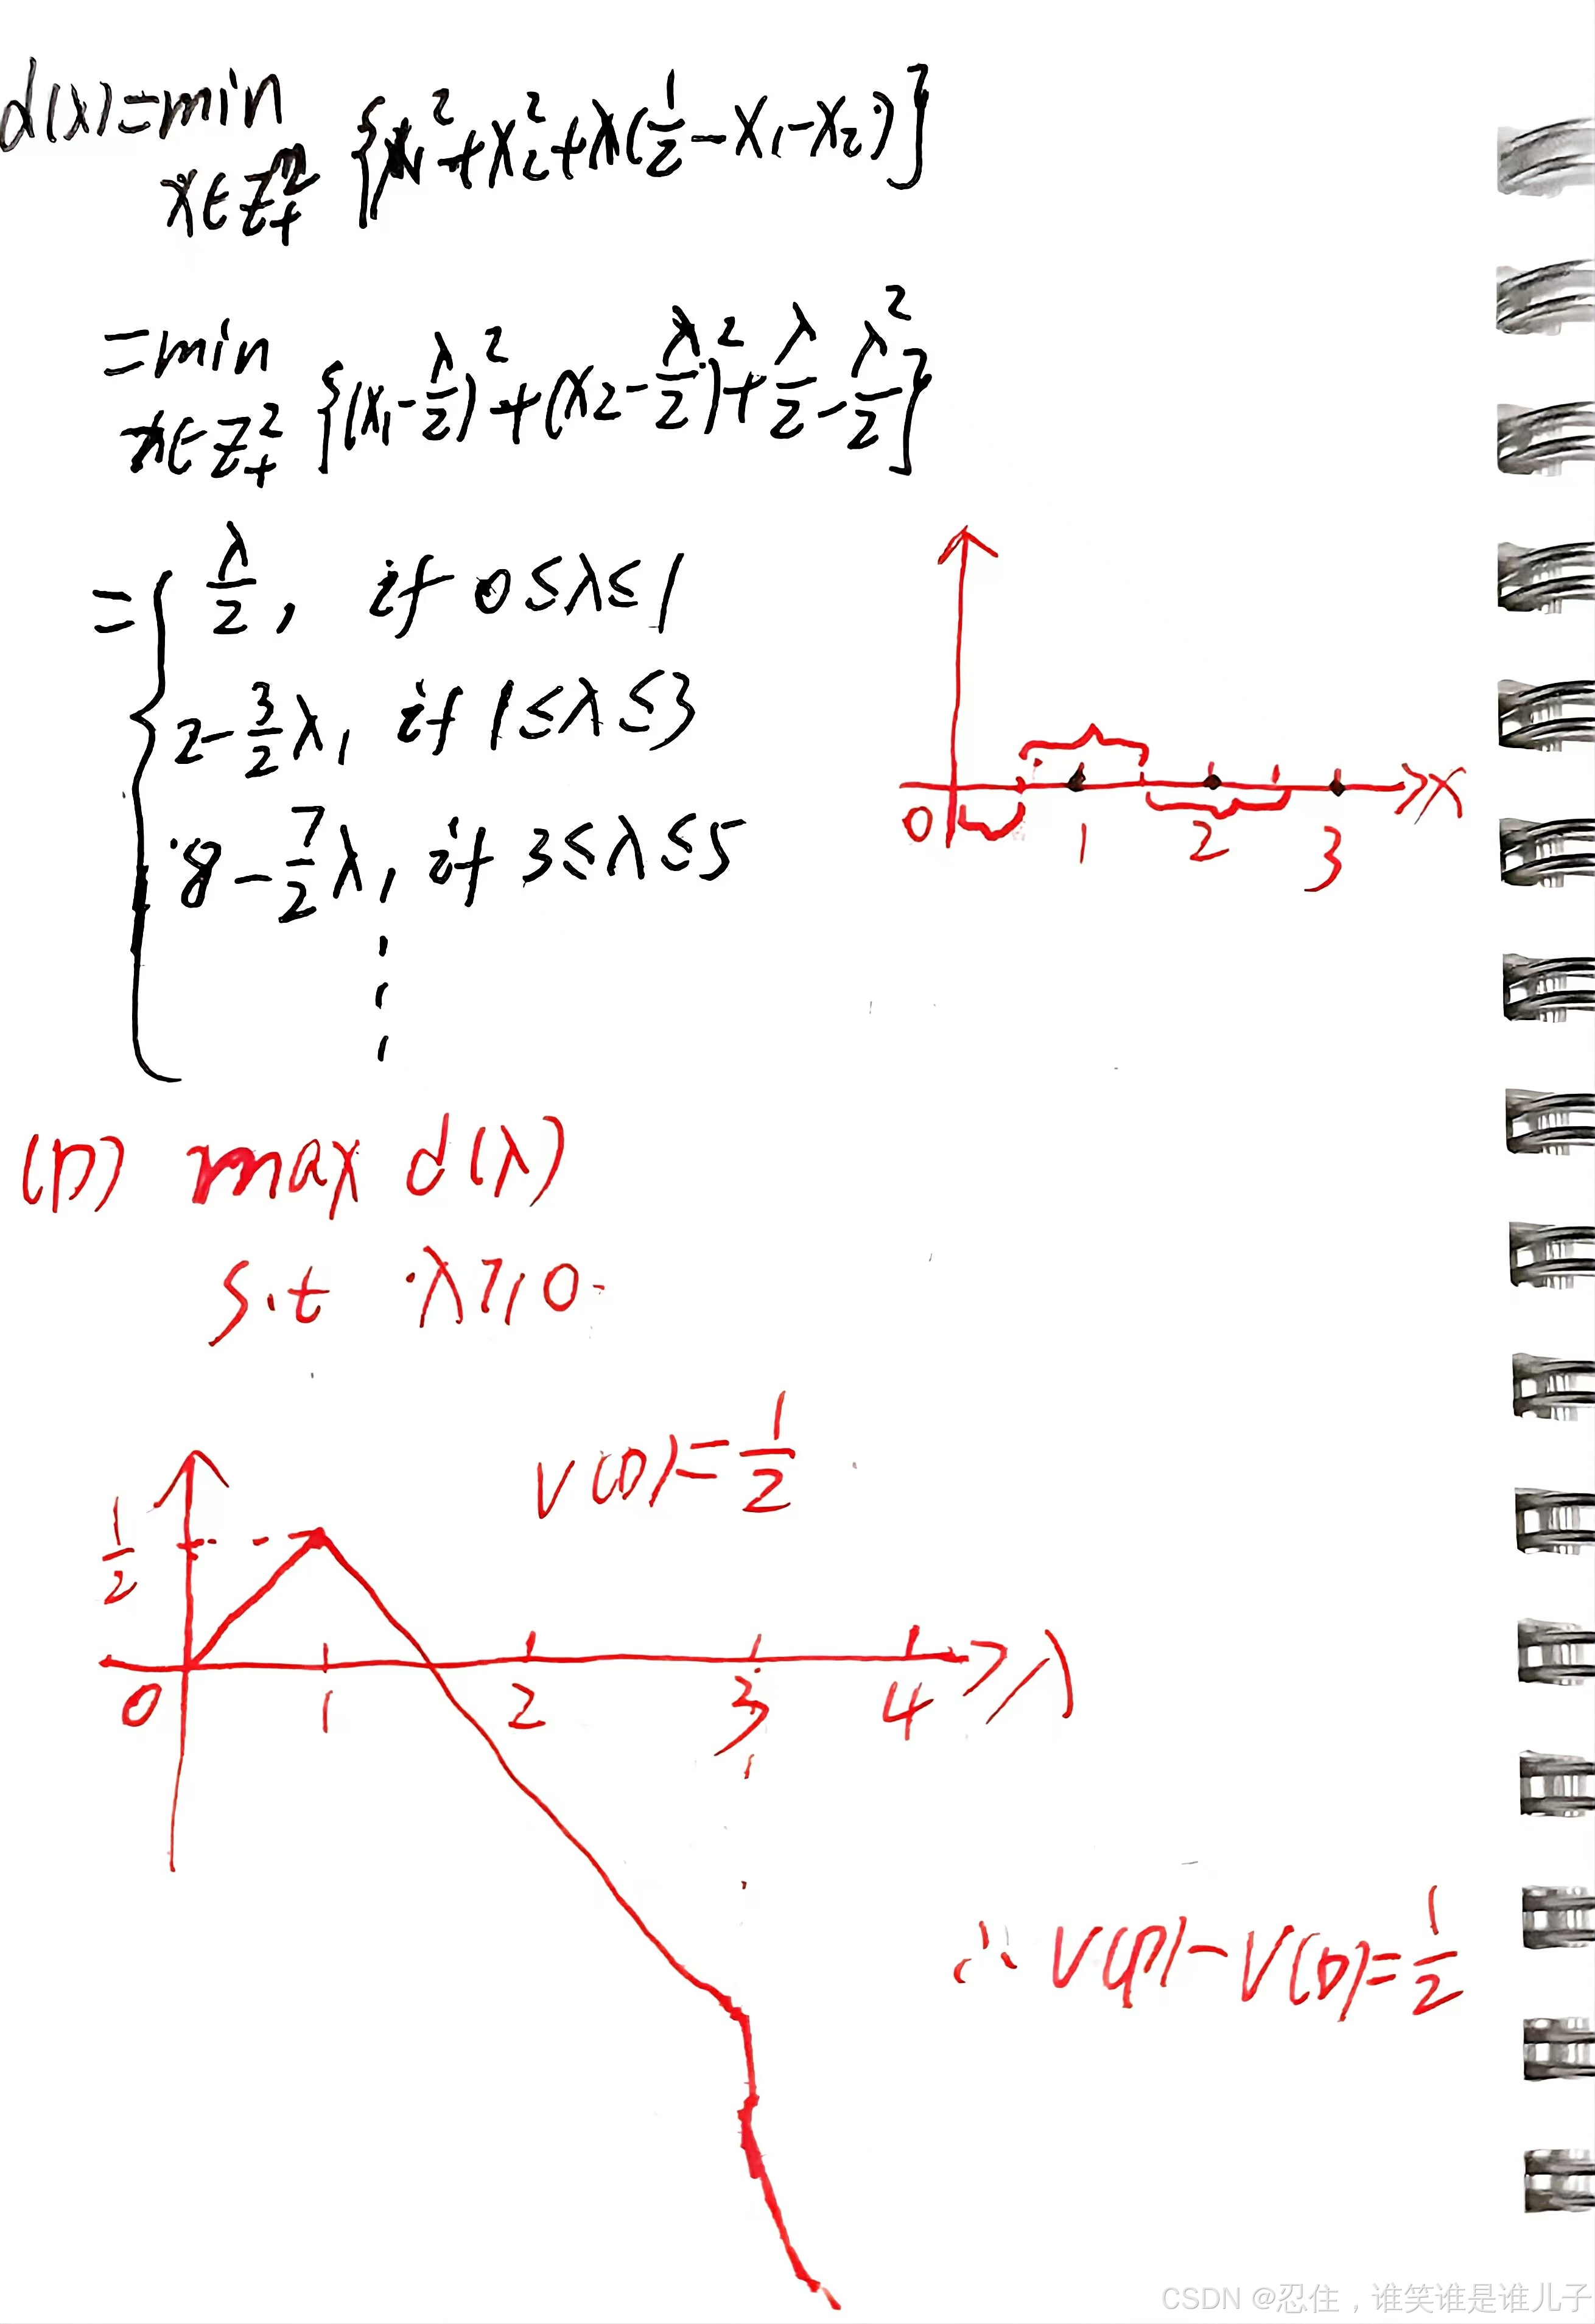 d(λ)=min {x₁²+x₂²+λ(1/2-x₁-x₂)}
x∈Z₊²
=min {(x₁-λ/2)²+(x₂-λ/2)²+λ/2-λ²/2}
x∈Z₊²
={ λ/2, if 0≤λ≤1
2-3/2λ, if 1≤λ≤3
8-7/2λ, if 3≤λ≤5
⋮
0 1 2 3 x
(D) max d(λ)
s.t λ≥0.
V(D)=1/2
1/2
0 1 2 3 4 λ
∴ V(P)-V(D)=1/2
CSDN @忍住，谁笑谁是谁儿子